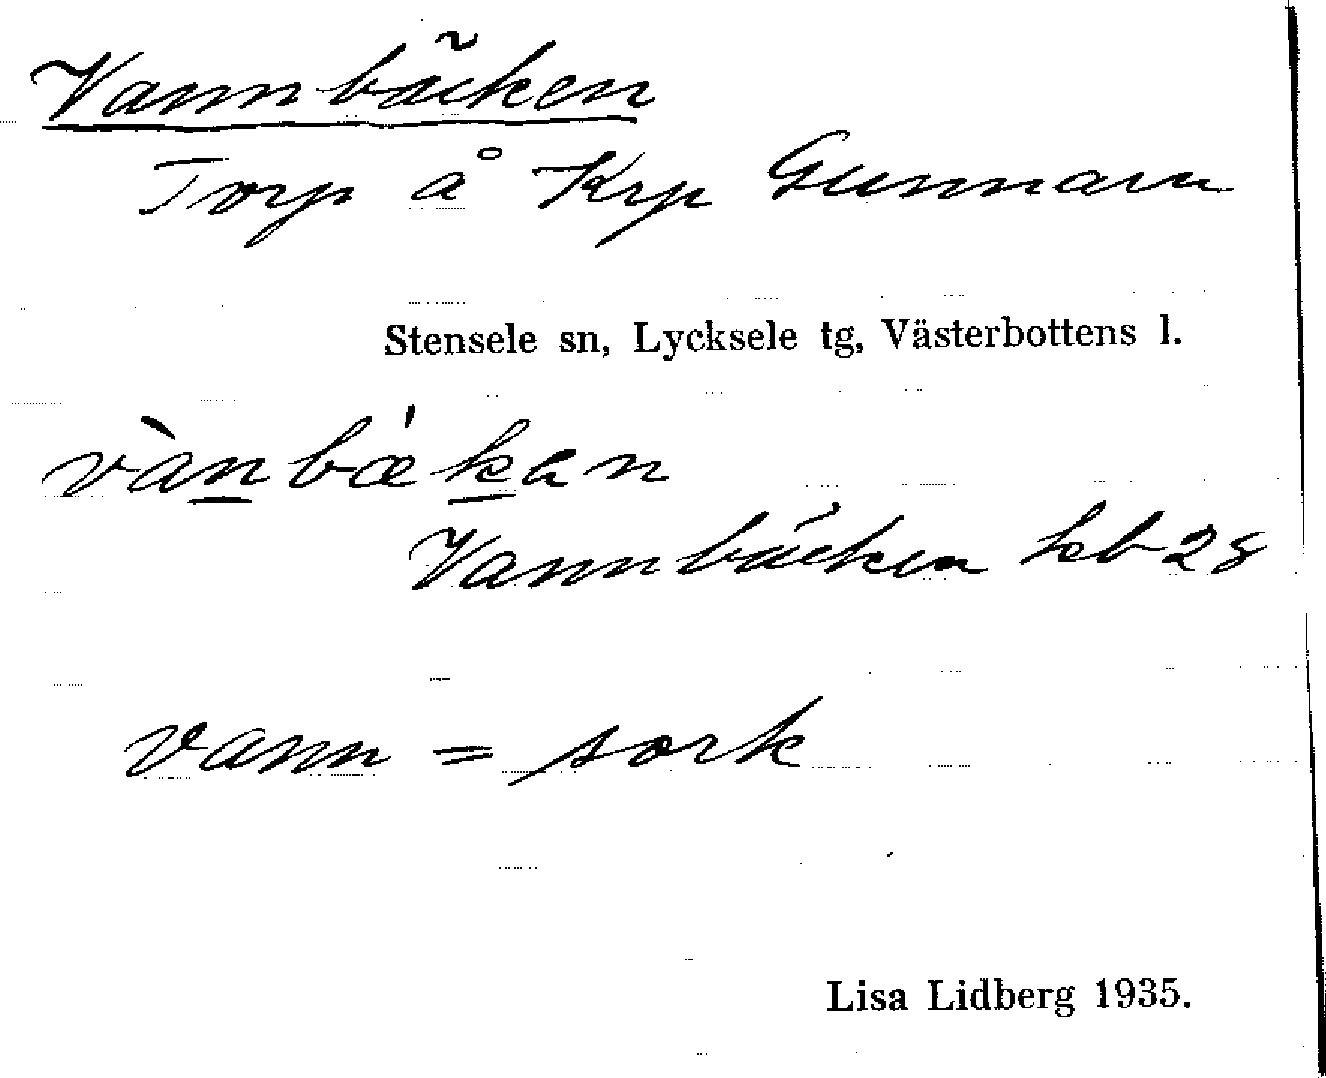 Vannbäcken
Torp å Krp Gunnarn
Stensele sn, Lycksele tg, Västerbottens l.
vànbǽkan
Vannbäcken kb 28
vann = sork
Lisa Lidberg 1935.